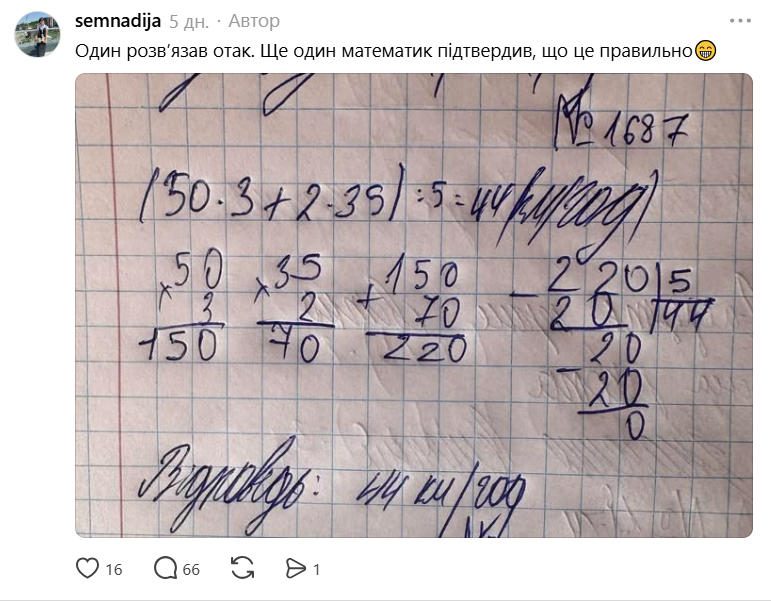 semnadija 5 дн. · Автор
Один розв'язав отак. Ще один математик підтвердив, що це правильно😁
№ 1687
(50·3+2·35):5=44(км/год)
×50 ×35 +150 -220|5
3 2 70 20 |44
150 70 220 20
-20
0
Відповідь: 44 км/год
16 66 1